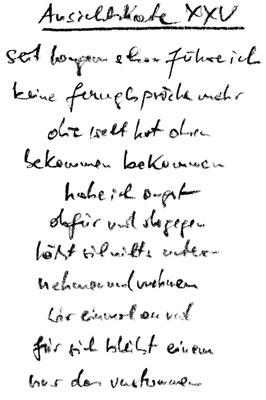 Ansichtskarte XXV
seit langem schon führe ich
keine ferngespräche mehr
die welt hat ohren
bekommen bekommen
habe ich angst
dafür und dagegen
läßt sich nichts unter-
nehmen und nehmen
wir einmal an und
für sich bleibt einem
nur das verstummen